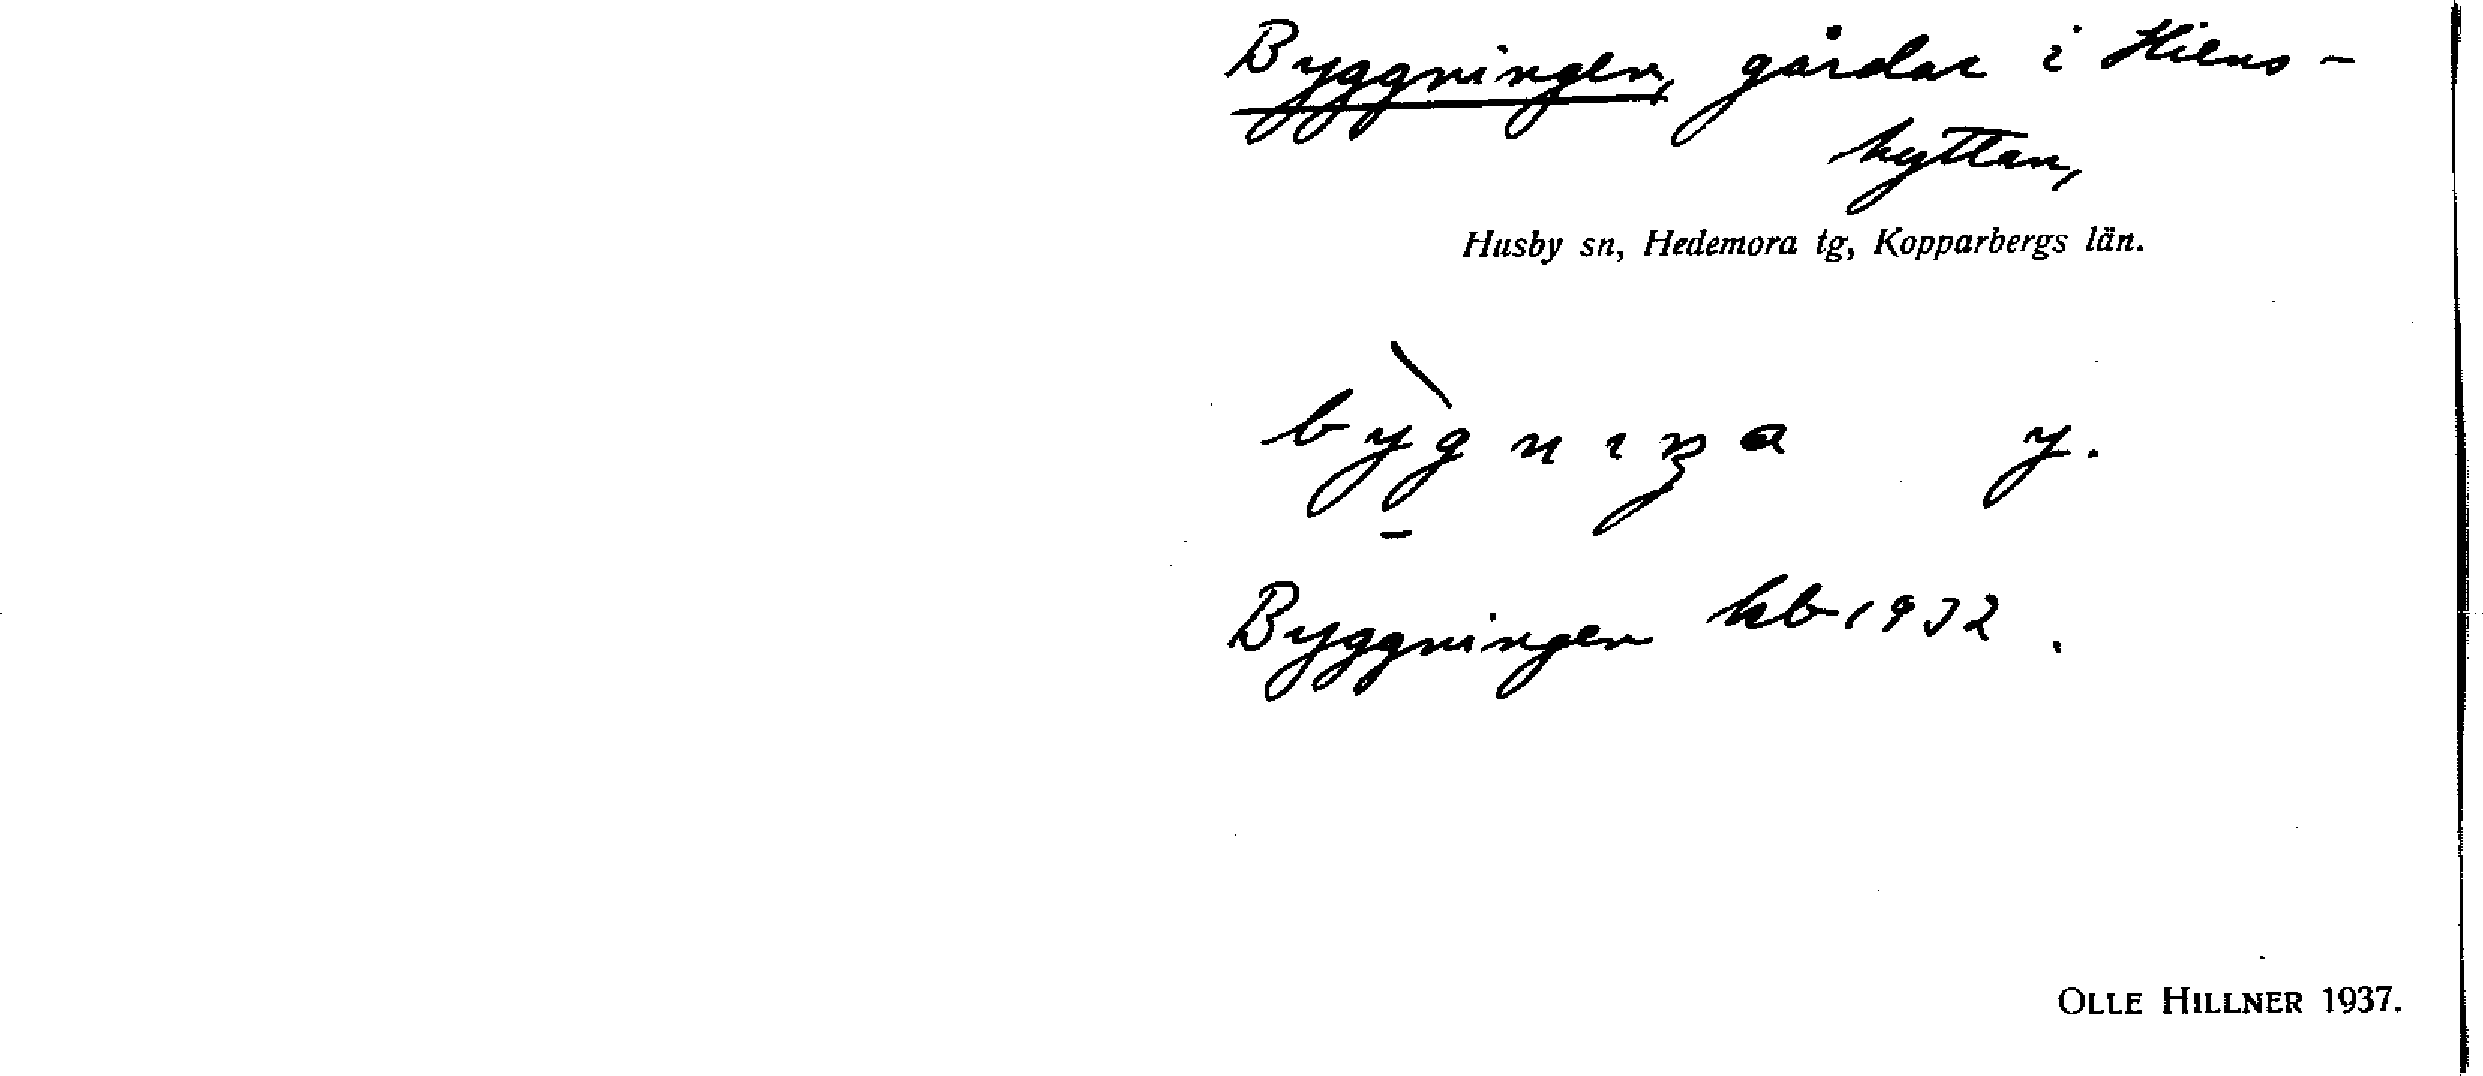 Byggningen, gårdar i Hiens-
hyttan,
Husby sn, Hedemora tg, Kopparbergs län.
bỳgnıŋa y.
Byggningen kb 1932.
OLLE HILLNER 1937.